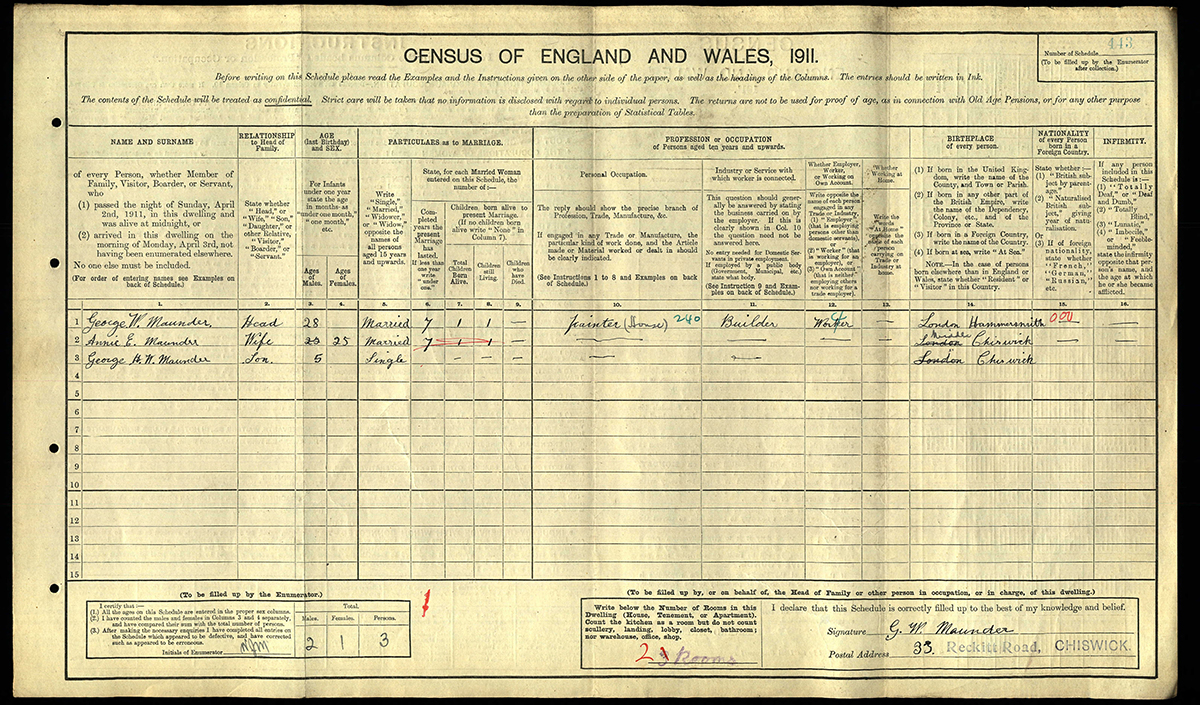 443
Number of Schedule
(To be filled up by the Enumerator
after collection.)
CENSUS OF ENGLAND AND WALES, 1911.
Before writing on this Schedule please read the Examples and the Instructions given on the other side of the paper, as well as the headings of the Columns. The entries should be written in Ink.
The contents of the Schedule will be treated as confidential. Strict care will be taken that no information is disclosed with regard to individual persons. The returns are not to be used for proof of age, as in connection with Old Age Pensions, or for any other purpose
than the preparation of Statistical Tables.
NAME AND SURNAME
of every Person, whether Member of
Family, Visitor, Boarder, or Servant,
who
(1) passed the night of Sunday, April
2nd, 1911, in this dwelling and
was alive at midnight, or
(2) arrived in this dwelling on the
morning of Monday, April 3rd, not
having been enumerated elsewhere.
No one else must be included.
(For order of entering names see Examples on
back of Schedule.)
RELATIONSHIP
to Head of
Family.
State whether
"Head," or
"Wife," "Son,"
"Daughter," or
other Relative,
"Visitor,"
"Boarder," or
"Servant."
AGE
(last Birthday)
and SEX.
For Infants
under one year
state the age
in months as
"under one month,"
"one month,"
etc.
Ages
of
Males.
Ages
of
Females.
PARTICULARS as to MARRIAGE.
Write
"Single,"
"Married,"
"Widower,"
or "Widow,"
opposite the
names of
all persons
aged 15 years
and upwards.
State, for each Married Woman
entered on this Schedule, the
number of:—
Completed
years the
present
Marriage
has
lasted.
If less than
one year
write
"under
one."
Children born alive to
present Marriage.
(If no children born
alive write "None" in
Column 7).
Total
Children
Born
Alive.
Children
still
Living.
Children
who
have
Died.
PROFESSION or OCCUPATION
of Persons aged ten years and upwards.
Personal Occupation.
The reply should show the precise branch of
Profession, Trade, Manufacture, &c.
If engaged in any Trade or Manufacture, the
particular kind of work done, and the Article
made or Material worked or dealt in should
be clearly indicated.
(See Instructions 1 to 8 and Examples on back
of Schedule.)
Industry or Service with
which worker is connected.
This question should generally
be answered by stating
the business carried on by
the employer. If this is
clearly shown in Col. 10
the question need not be
answered here.
No entry needed for Domestic Servants
in private employment.
If employed by a public body
(Government, Municipal, etc.)
state what body.
(See Instruction 9 and Examples
on back of Schedule.)
Whether Employer,
Worker,
or Working on
Own Account.
Write opposite the
name of each person
engaged in any
Trade or Industry,
(1) "Employer"
(that is employing
persons other than
domestic servants),
or
(2) "Worker" (that
is working for an
employer), or
(3) "Own Account"
(that is neither
employing others
nor working for a
trade employer).
Whether
Working at
Home.
Write the
words
"At Home"
opposite the
name of each
person
carrying on
Trade or
Industry at
home.
BIRTHPLACE
of every person.
(1) If born in the United Kingdom,
write the name of the
County, and Town or Parish.
(2) If born in any other part of
the British Empire, write
the name of the Dependency,
Colony, etc., and of the
Province or State.
(3) If born in a Foreign Country,
write the name of the Country.
(4) If born at sea, write "At Sea."
NOTE.—In the case of persons
born elsewhere than in England or
Wales, state whether "Resident" or
"Visitor" in this Country.
NATIONALITY
of every Person
born in a
Foreign Country.
State whether:—
(1) "British subject
by parentage,"
(2) "Naturalised
British subject,"
giving
year of naturalisation.
Or
(3) If of foreign
nationality,
state whether
"French,"
"German,"
"Russian,"
etc.
INFIRMITY.
If any person
included in this
Schedule is:—
(1) "Totally
Deaf," or "Deaf
and Dumb,"
(2) "Totally
Blind,"
(3) "Lunatic,"
(4) "Imbecile,"
or "Feeble-minded,"
state the infirmity
opposite that person's
name, and
the age at which
he or she became
afflicted.
1. 2. 3. 4. 5. 6. 7. 8. 9. 10. 11. 12. 13. 14. 15. 16.
1 George W. Maunder, Head 28 Married 7 1 1 — painter (House) 240 Builder Worker London Hammersmith 000 —
2 Annie E. Maunder Wife 25 Married 7 1 1 — London Middle Chiswick — —
3 George H. W. Maunder Son. 5 Single — — — London Chiswick
4
5
6
7
8
9
10
11
12
13
14
15
(To be filled up by the Enumerator.)
I certify that:—
(1.) All the ages on this Schedule are entered in the proper sex columns.
(2.) I have counted the males and females in Columns 3 and 4 separately,
and have compared their sum with the total number of persons.
(3.) After making the necessary enquiries I have completed all entries on
the Schedule which appeared to be defective, and have corrected
such as appeared to be erroneous.
Initials of Enumerator
Total.
Males. Females. Persons.
2 1 3
(To be filled up by, or on behalf of, the Head of Family or other person in occupation, or in charge, of this dwelling.)
Write below the Number of Rooms in this
Dwelling (House, Tenement, or Apartment).
Count the kitchen as a room but do not count
scullery, landing, lobby, closet, bathroom;
nor warehouse, office, shop.
2 3 Rooms
I declare that this Schedule is correctly filled up to the best of my knowledge and belief.
Signature G. W. Maunder
Postal Address 33. Reckitt Road, CHISWICK.